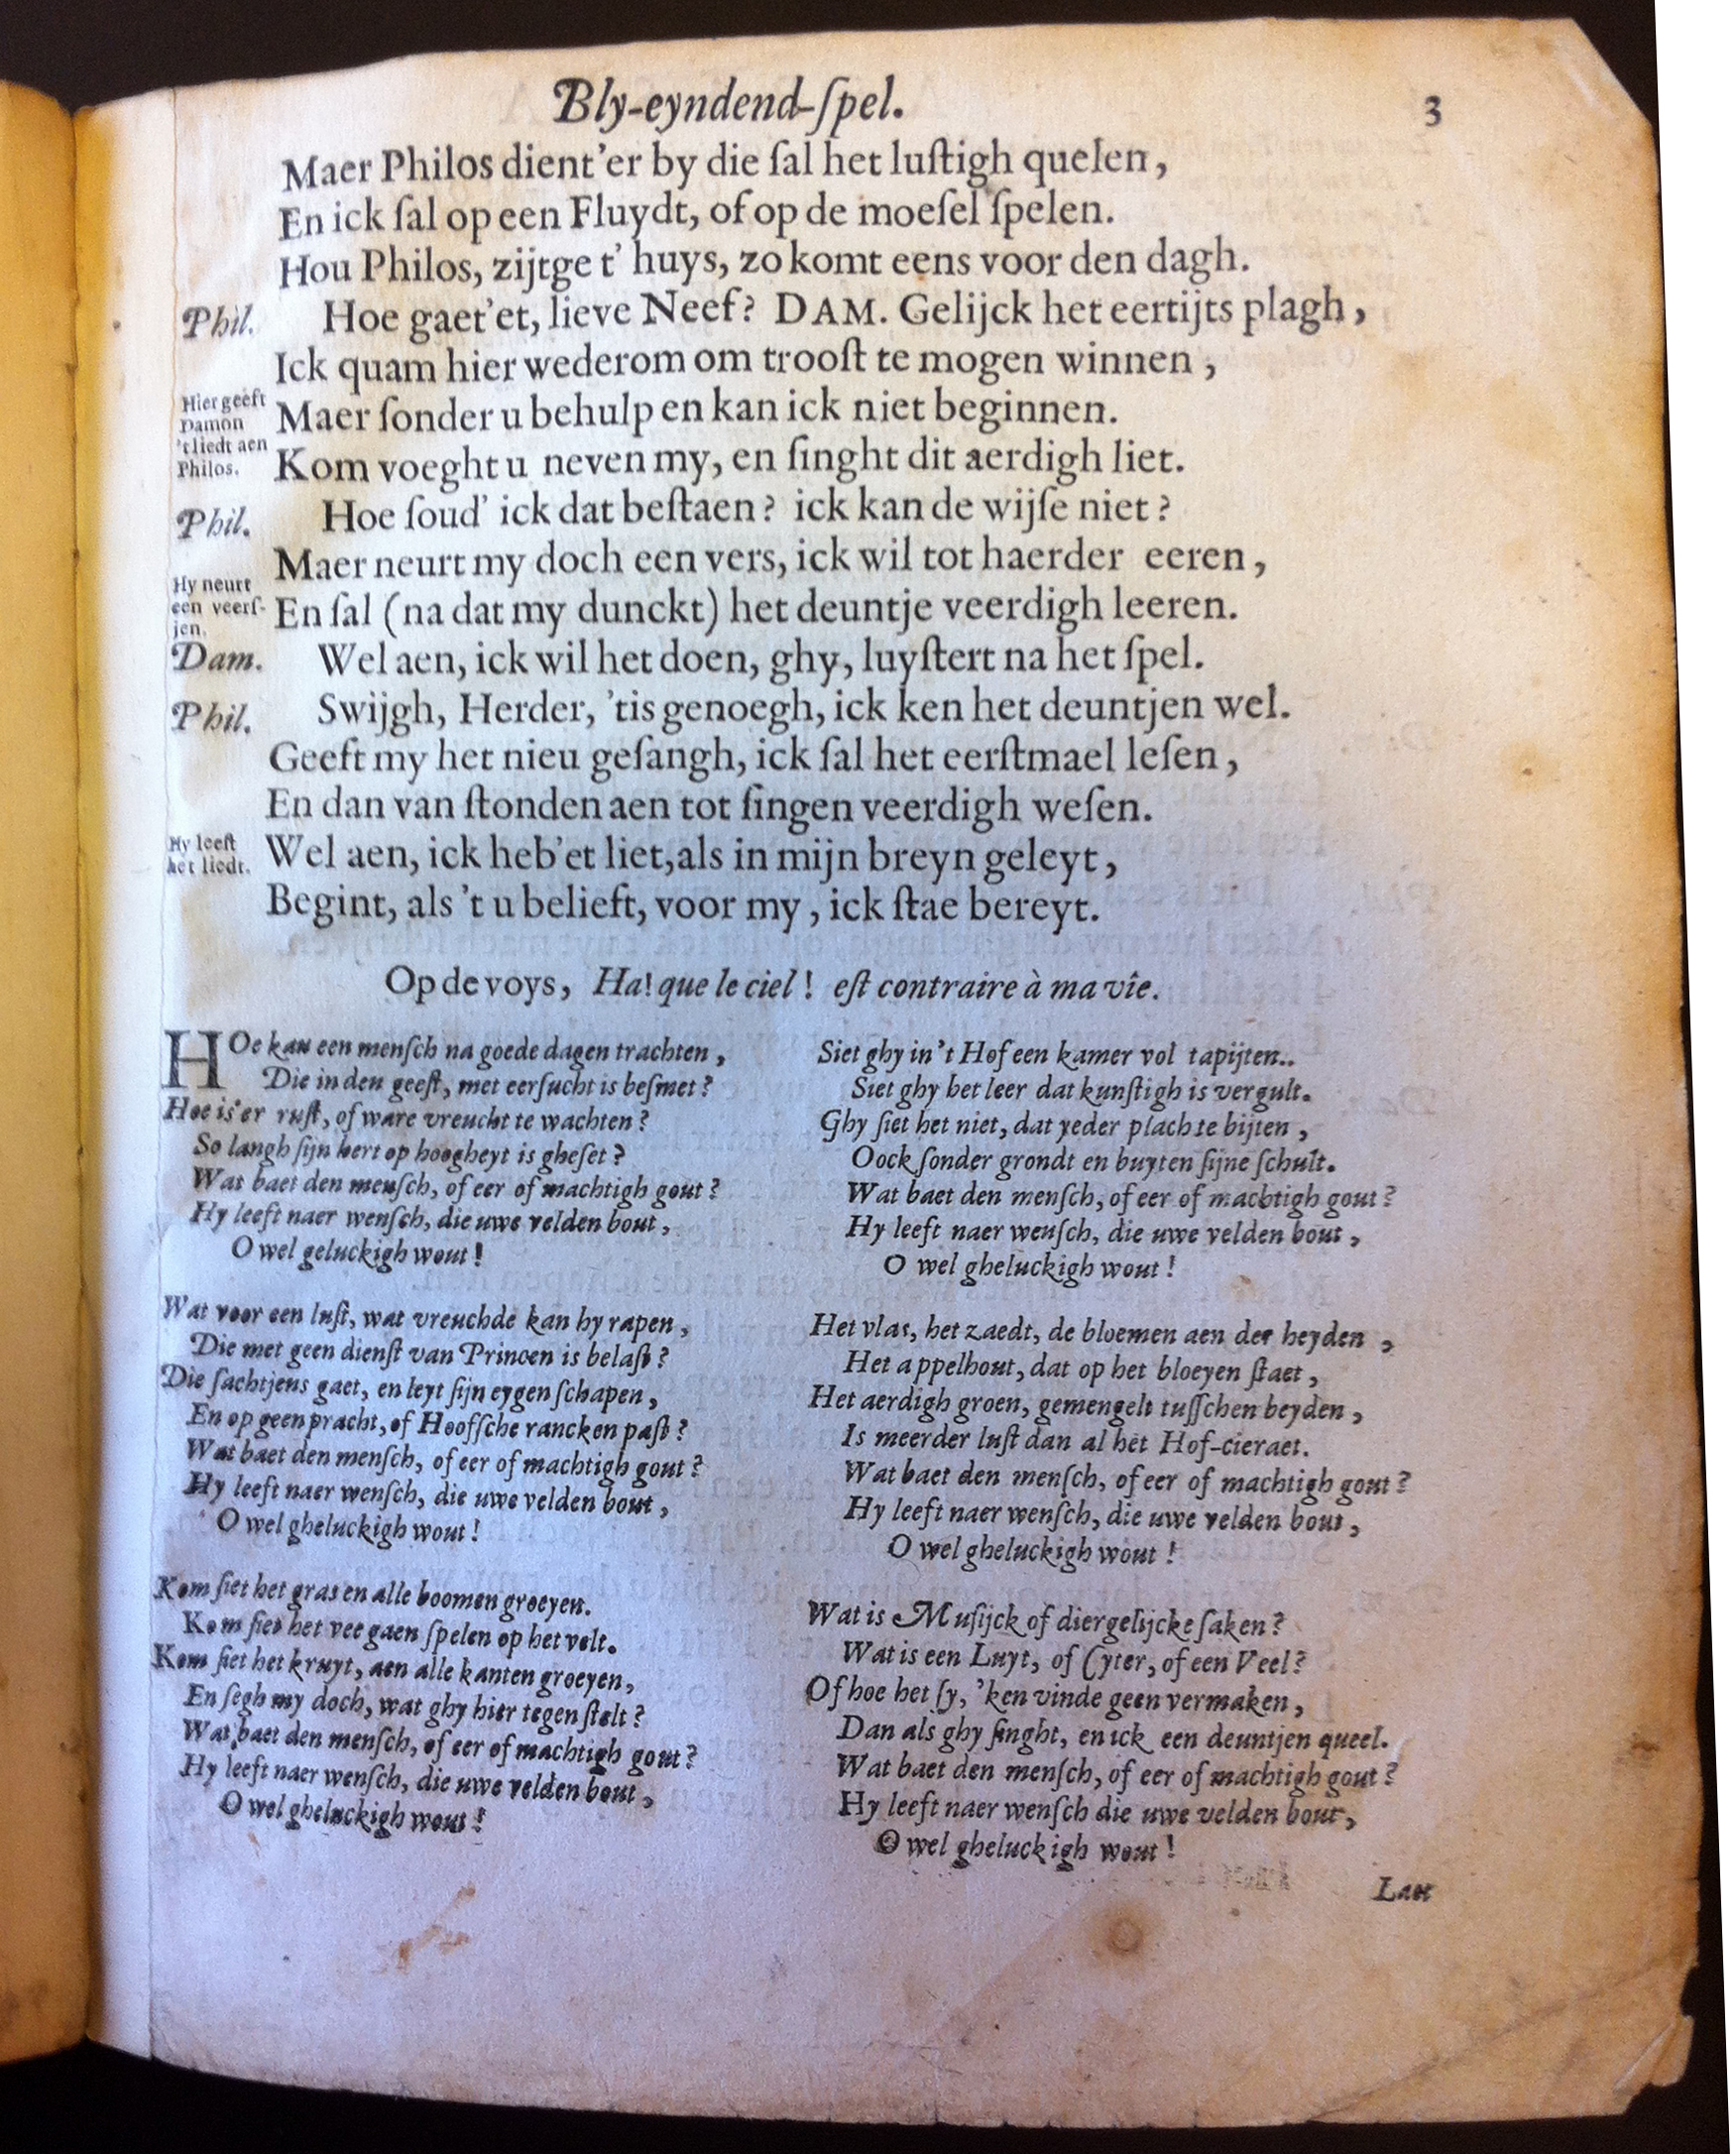 Bly-eyndend-ſpel. 3
Maer Philos dient'er by die ſal het luſtigh quelen,
En ick ſal op een Fluydt, of op de moeſel ſpelen.
Hou Philos, zijtge t' huys, zo komt eens voor den dagh.
Phil. Hoe gaet'et, lieve Neef? DAM. Gelijck het eertijts plagh,
Ick quam hier wederom om trooſt te mogen winnen,
Hier geeft
Damon
't liedt aen
Philos.
Maer ſonder u behulp en kan ick niet beginnen.
Kom voeght u neven my, en ſinght dit aerdigh liet.
Phil. Hoe ſoud' ick dat beſtaen? ick kan de wijſe niet?
Maer neurt my doch een vers, ick wil tot haerder eeren,
Hy neurt
een veerſ-
jen.
En ſal (na dat my dunckt) het deuntje veerdigh leeren.
Dam. Wel aen, ick wil het doen, ghy, luyſtert na het ſpel.
Phil. Swijgh, Herder, 'tis genoegh, ick ken het deuntjen wel.
Geeft my het nieu geſangh, ick ſal het eerſtmael leſen,
En dan van ſtonden aen tot ſingen veerdigh weſen.
Hy leeſt
het liedt.
Wel aen, ick heb'et liet, als in mijn breyn geleyt,
Begint, als 't u belieft, voor my, ick ſtae bereyt.
Op de voys, Ha! que le ciel! eſt contraire à ma vîe.
HOe kan een menſch na goede dagen trachten,
Die in den geeſt, met eerſucht is beſmet?
Hoe is'er ruſt, of ware vreucht te wachten?
So langh ſijn hert op hoogheyt is gheſet?
Wat baet den menſch, of eer of machtigh gout?
Hy leeft naer wenſch, die uwe velden bout,
O wel geluckigh wout!
Wat voor een luſt, wat vreuchde kan hy rapen,
Die met geen dienſt van Princen is belaſt?
Die ſachtjens gaet, en leyt ſijn eygen ſchapen,
En op geen pracht, of Hoofſche rancken paſt?
Wat baet den menſch, of eer of machtigh gout?
Hy leeft naer wenſch, die uwe velden bout,
O wel gheluckigh wout!
Kom ſiet het gras en alle boomen groeyen.
Kom ſiet het vee gaen ſpelen op het velt.
Kom ſiet het kruyt, aen alle kanten groeyen,
En ſegh my doch, wat ghy hier tegen ſtelt?
Wat baet den menſch, of eer of machtigh gout?
Hy leeft naer wenſch, die uwe velden bout,
O wel gheluckigh wout!
Siet ghy in't Hof een kamer vol tapijten..
Siet ghy het leer dat kunſtigh is vergult.
Ghy ſiet het niet, dat yeder plach te bijten,
Oock ſonder grondt en buyten ſijne ſchult.
Wat baet den menſch, of eer of machtigh gout?
Hy leeft naer wenſch, die uwe velden bout,
O wel gheluckigh wout!
Het vlas, het zaedt, de bloemen aen der heyden,
Het appelhout, dat op het bloeyen ſtaet,
Het aerdigh groen, gemengelt tuſſchen beyden,
Is meerder luſt dan al het Hof-cieraet.
Wat baet den menſch, of eer of machtigh gout?
Hy leeft naer wenſch, die uwe velden bout,
O wel gheluckigh wout!
Wat is Muſijck of diergelijcke ſaken?
Wat is een Luyt, of Cyter, of een Veel?
Of hoe het ſy, 'ken vinde geen vermaken,
Dan als ghy ſinght, en ick een deuntjen queel.
Wat baet den menſch, of eer of machtigh gout?
Hy leeft naer wenſch die uwe velden bout,
O wel gheluckigh wout!
Laet